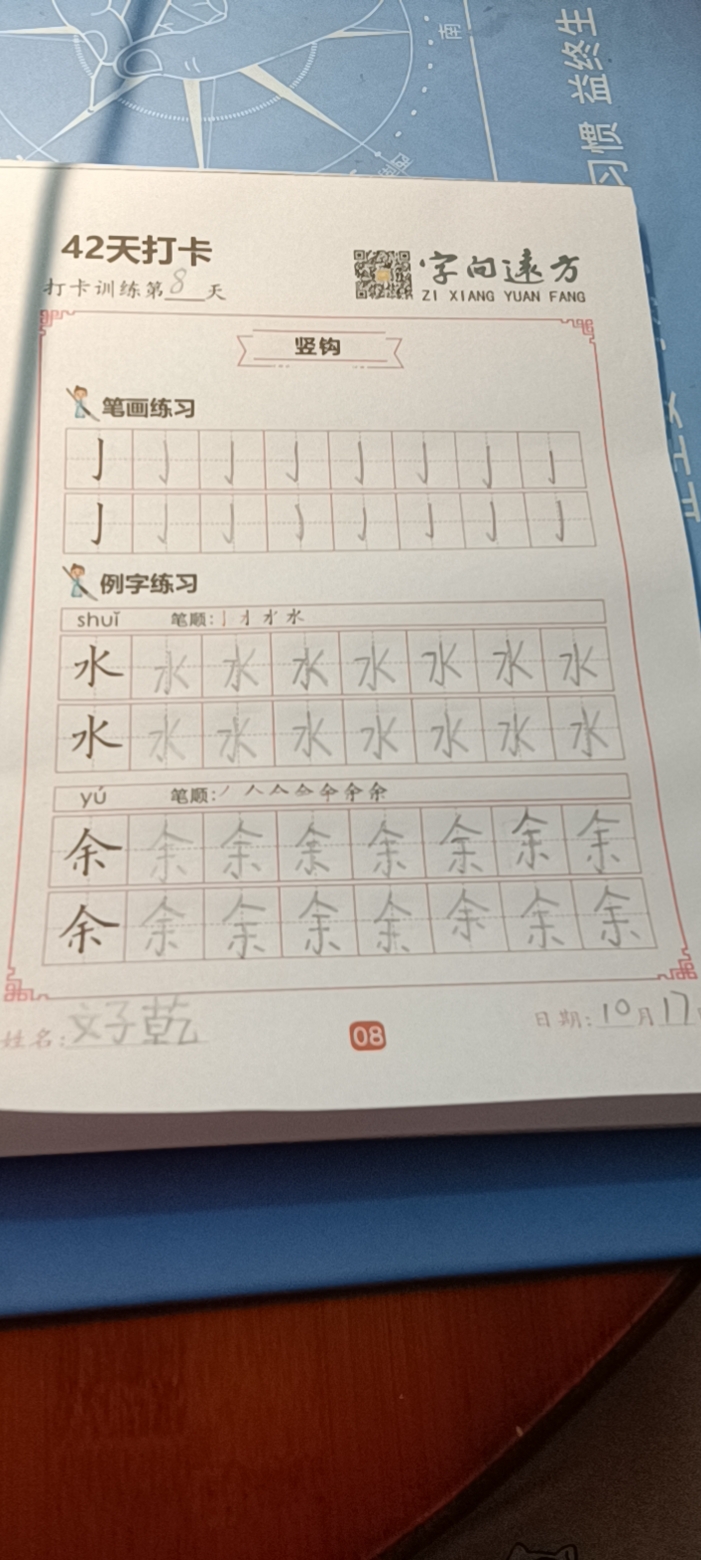 南
习惯 益终生
42天打卡
打卡训练第8天
字向远方
ZI XIANG YUAN FANG
竖钩
笔画练习
亅亅亅亅亅亅亅亅
亅亅亅亅亅亅亅亅
例字练习
shuǐ 笔顺:
水水水水水水水水
水水水水水水水水
yú 笔顺:
余余余余余余余余
余余余余余余余余
姓名:文子乾
08
日期:10月17